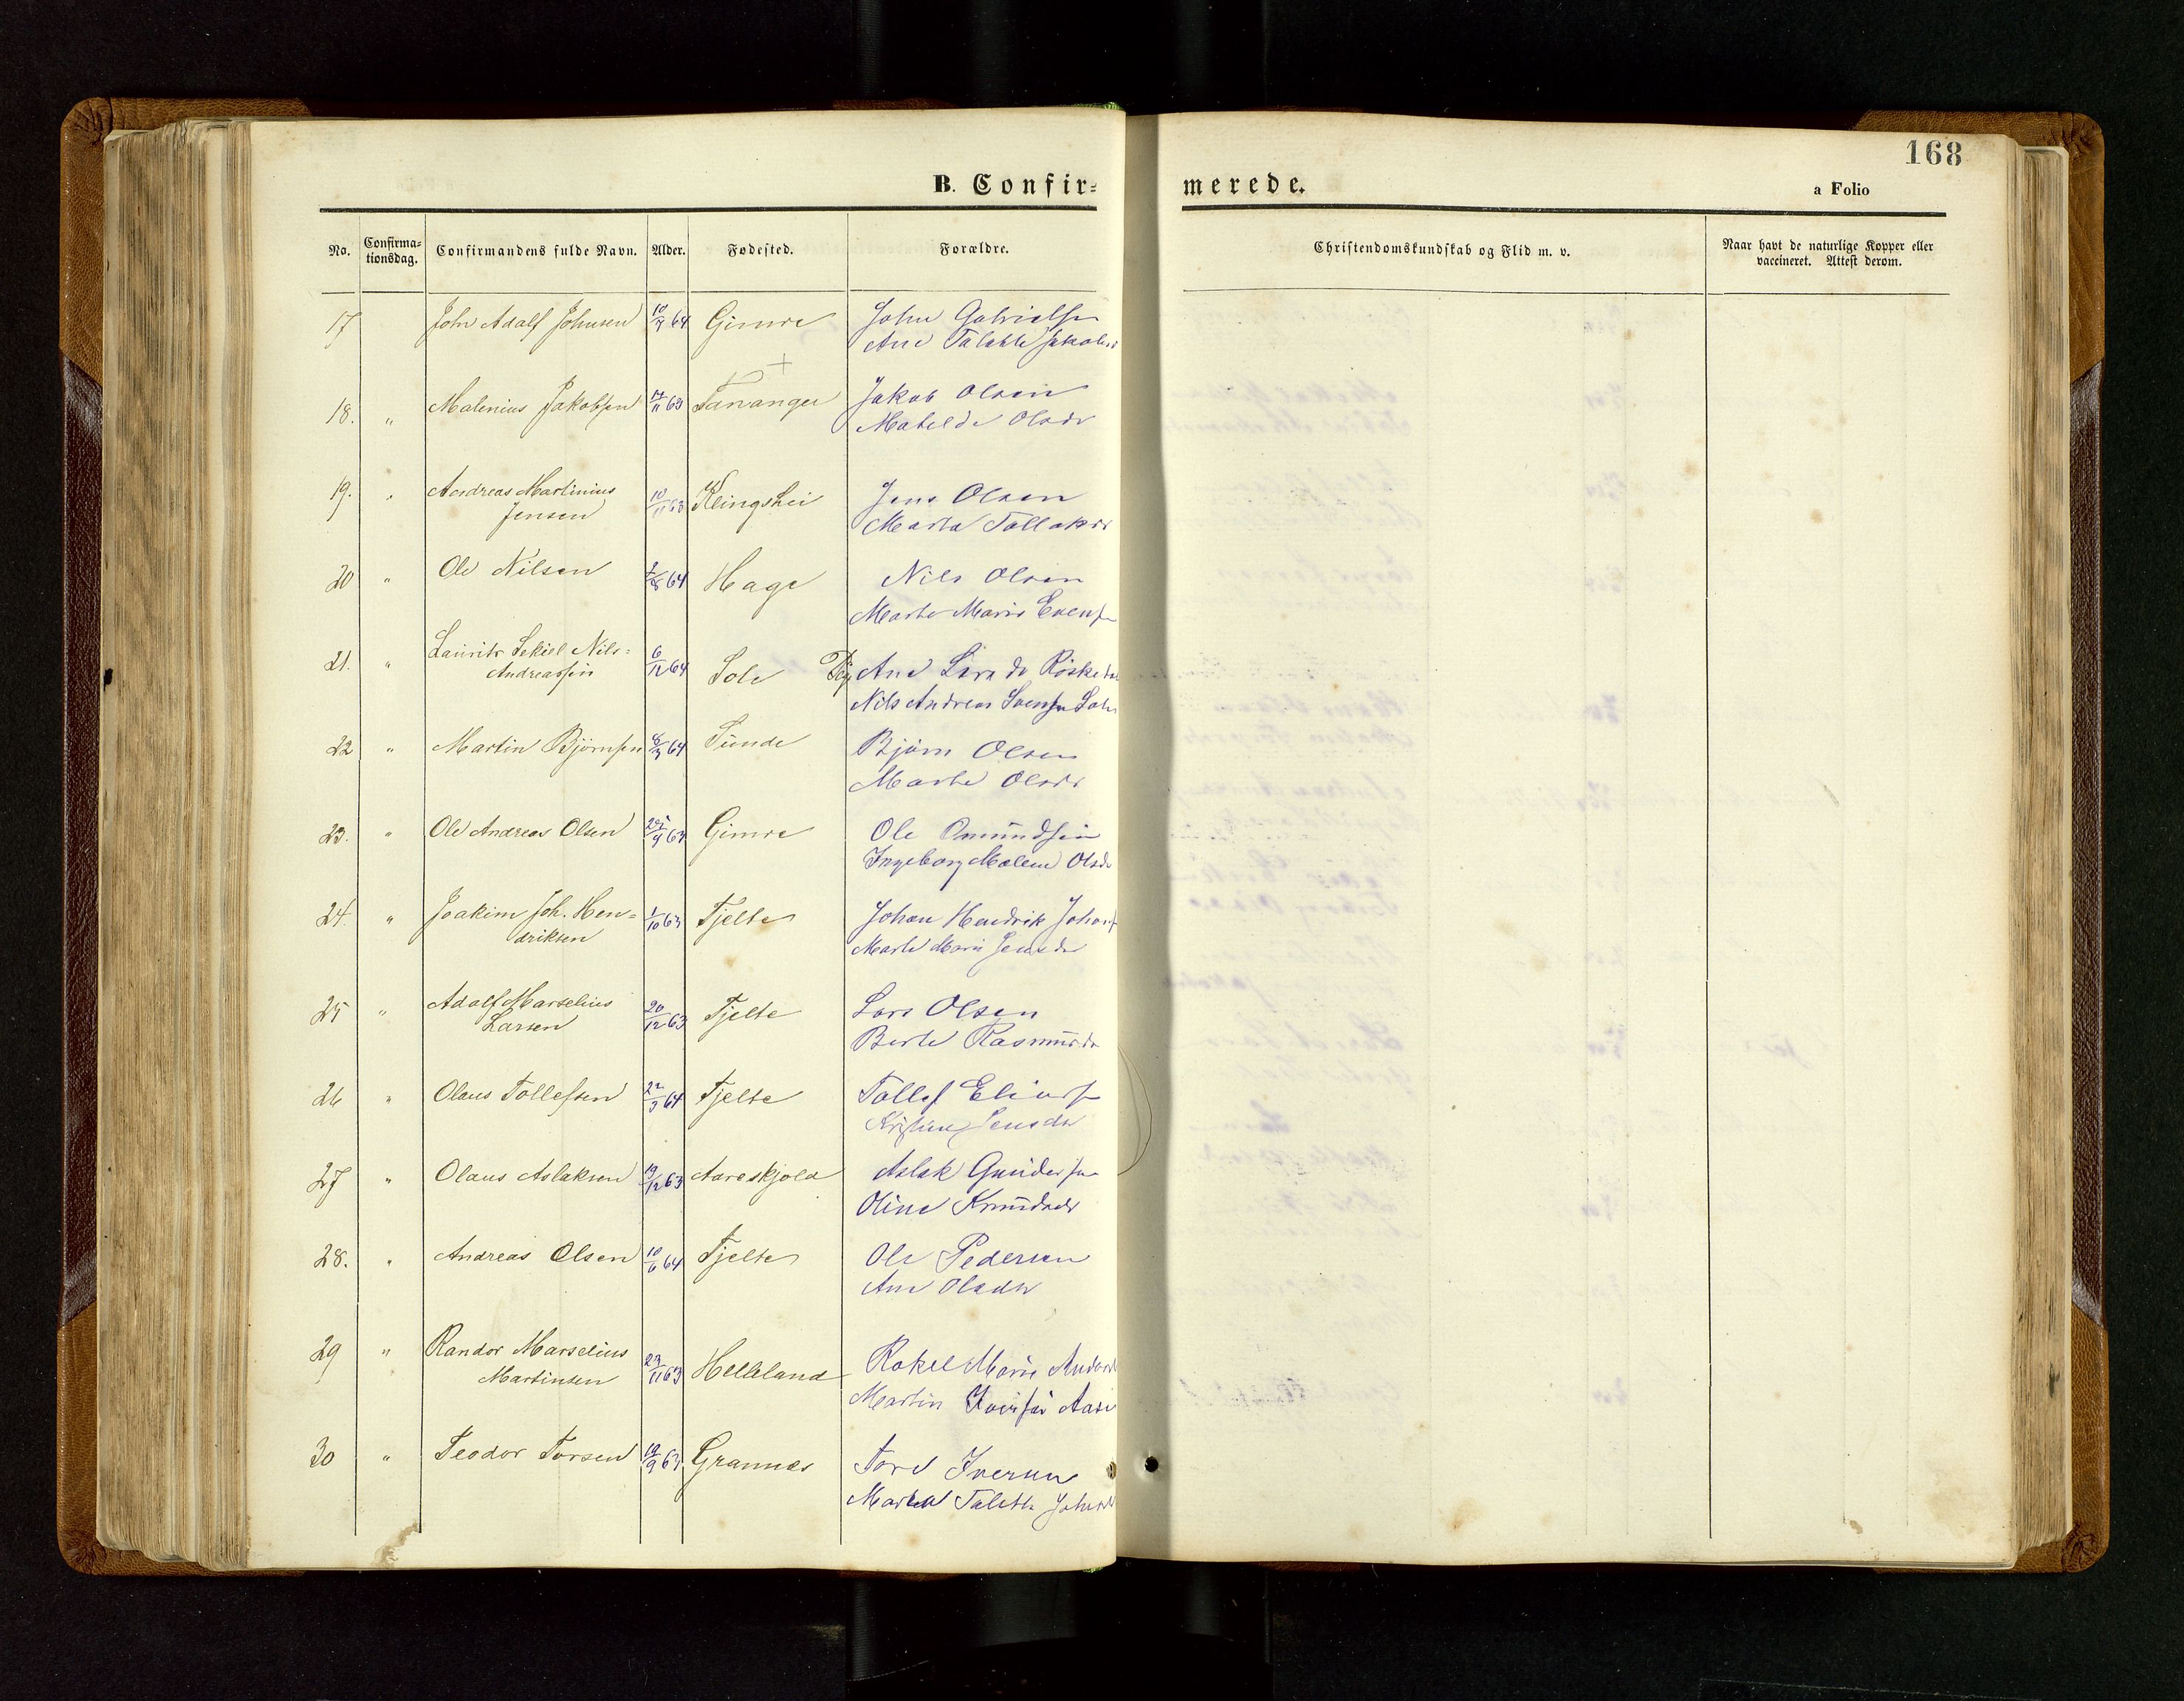 168
B. Confir-
merede.
a Folio
No.
Confirma-
tionsdag.
Confirmandens fulde Navn.
Alder.
Fødested.
Forældre.
Christendomskundskab og Flid m. v.
Naar havt de naturlige Kopper eller
vaccineret. Attest derom.
17 John Adolf Johnsen 64 Gimre John Gabrielsen
Ane Talette
18. " Malenius Jakobsen 17/11 63 Tananger Jakob Olsen
Matilde Olsdr
19. " Andreas Martinius 10/11 63 Klingshei Jens Olsen
Jensen Marta Tollaksdr
20 " Ole Nilsen 64 Hage Nils Olsen
Marte Marie
21. " Laurits Sekiel Nils- 6/12 64 Sole Ane
Andreassen Nils Andreas
22 " Martin Bjørnsen 8/3 64 Sunde Bjørn Olsen
Marte Olsdr
23. " Ole Andreas Olsen 25/9 63 Gimre Ole Omundsen
Ingeborg Malene Olsdr
24. " Joakim Joh. Hen- 1/10 63 Tjelte Johan Hendrik
driksen Marte Marie Jensdr
25 " Adolf Marselius 20/12 63 Tjelte Lars Olsen
Larsen Berte
26 " Olaus Tollefsen 22/3 64 Tjelte Tollef
Jensdr
27 " Olaus Aslaksen 19/12 63 Aareskjold Aslak Gundersen
Oline Knudsdr
28. " Andreas Olsen 10/6 64 Tjelte Ole Pedersen
Ane Olsdr
29 " Randor Marselius 23/11 63 Helleland Rakel Marie
Martinsen Martin
30 " Teodor Torsen 19/9 63 Grannes Tore Iversen
Talette